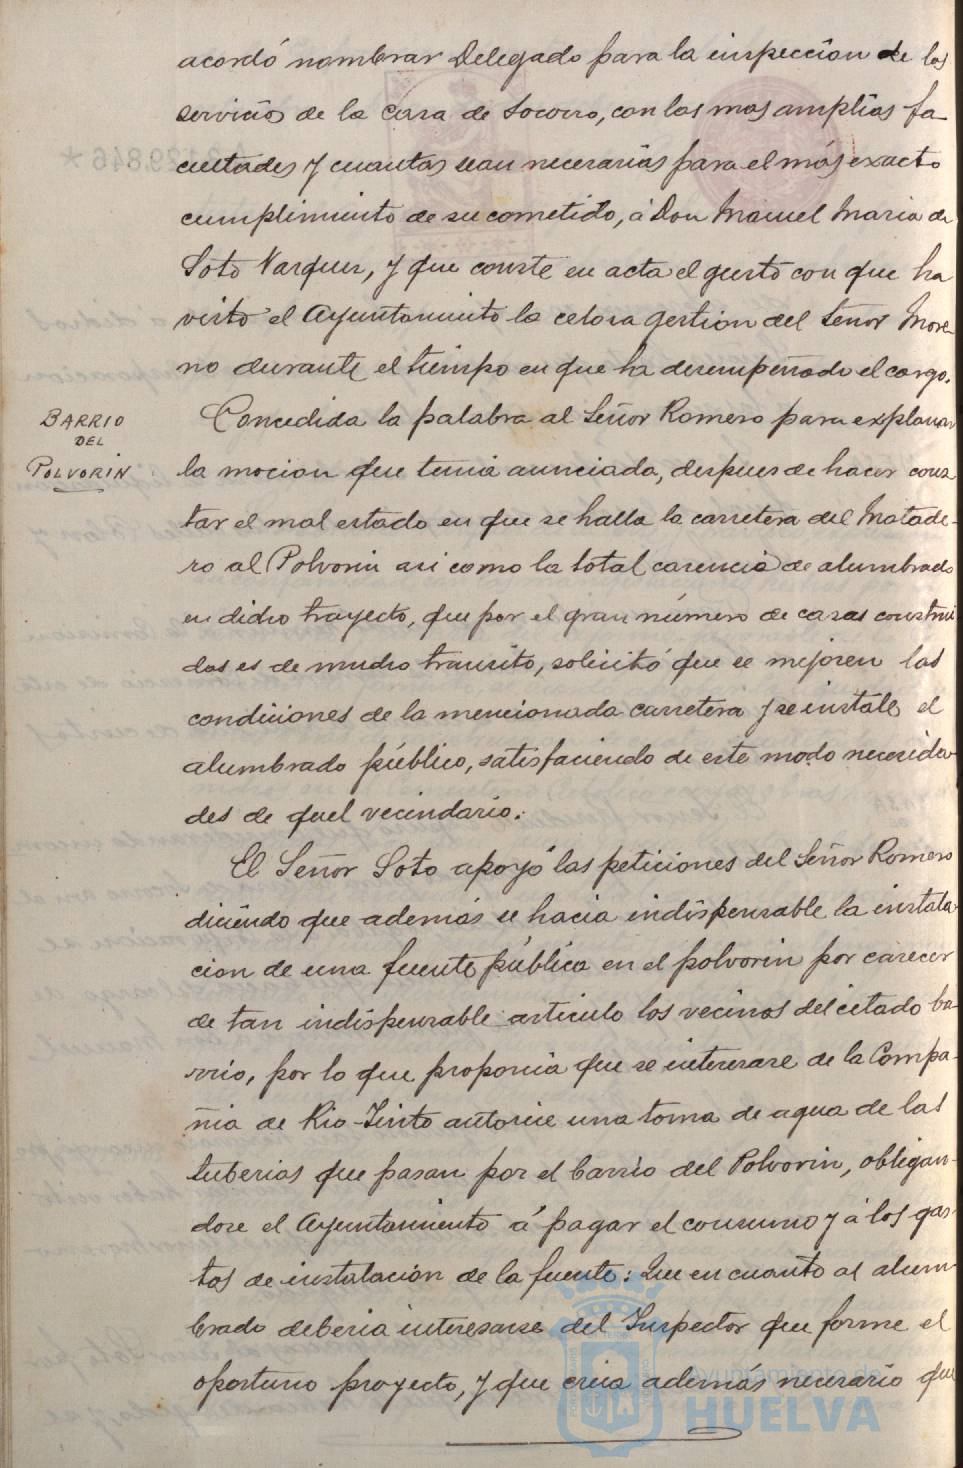 acordó nombrar Delegado para la inspección de los
servicios de la Casa de Socorro, con las mas amplias fa
cultades y cuantas sean necesarias para el más exacto
cumplimiento de su cometido, á Don Manuel Maria de
Soto Vazquez, y que conste en acta el gusto con que ha
visto el Ayuntamiento la celosa gestion del Señor More-
no durante el tiempo en que ha desempeñado el cargo.
BARRIO
DEL
POLVORIN
Concedida la palabra al Señor Romero para explanar
la mocion que tenia anunciada, despues de hacer cons
tar el mal estado en que se halla la carretera del Matade-
ro al Polvorin asi como la total carencia de alumbrado
en dicho trayecto, que por el gran número de casas construi
das es de mucho transito, solicitó que se mejoren las
condiciones de la mencionada carretera y se instale el
alumbrado público, satisfaciendo de este modo necesida-
des de quel vecindario.
El Señor Soto apoyó las peticiones del Señor Romero
diciendo que además se hacia indispensable la instala
cion de una fuente pública en el polvorin por carecer
de tan indispensable articulo los vecinos del citado ba-
rrio, por lo que proponia que se interesase de la Compa-
ñia de Rio-Tinto autorice una toma de agua de las
tuberias que pasan por el barrio del Polvorin, obligan-
dose el Ayuntamiento á pagar el consumo y á los gas-
tos de instalación de la fuente: Que en cuanto al alum
brado deberia interesarse del Inspector que forme el
oportuno proyecto, y que creia además necesario que
Ayuntamiento de
HUELVA